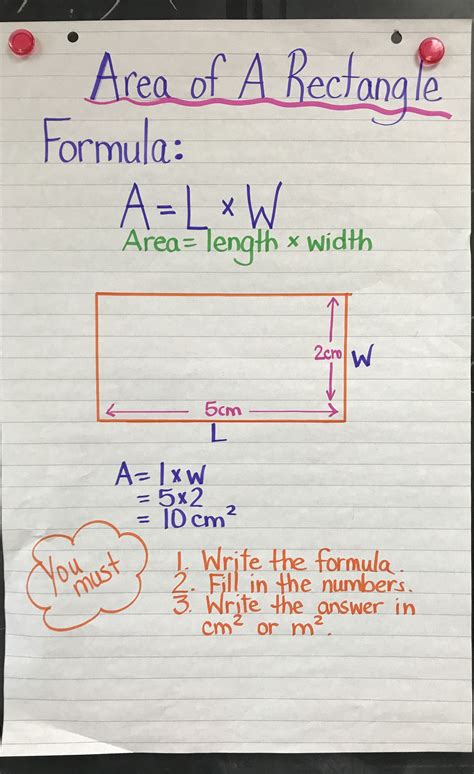 Area of A Rectangle
Formula:
A = L × W
Area = length × width
2cm W
5cm
L
A = l x w
= 5x2
= 10 cm²
You must
1. Write the formula.
2. Fill in the numbers.
3. Write the answer in
cm² or m².